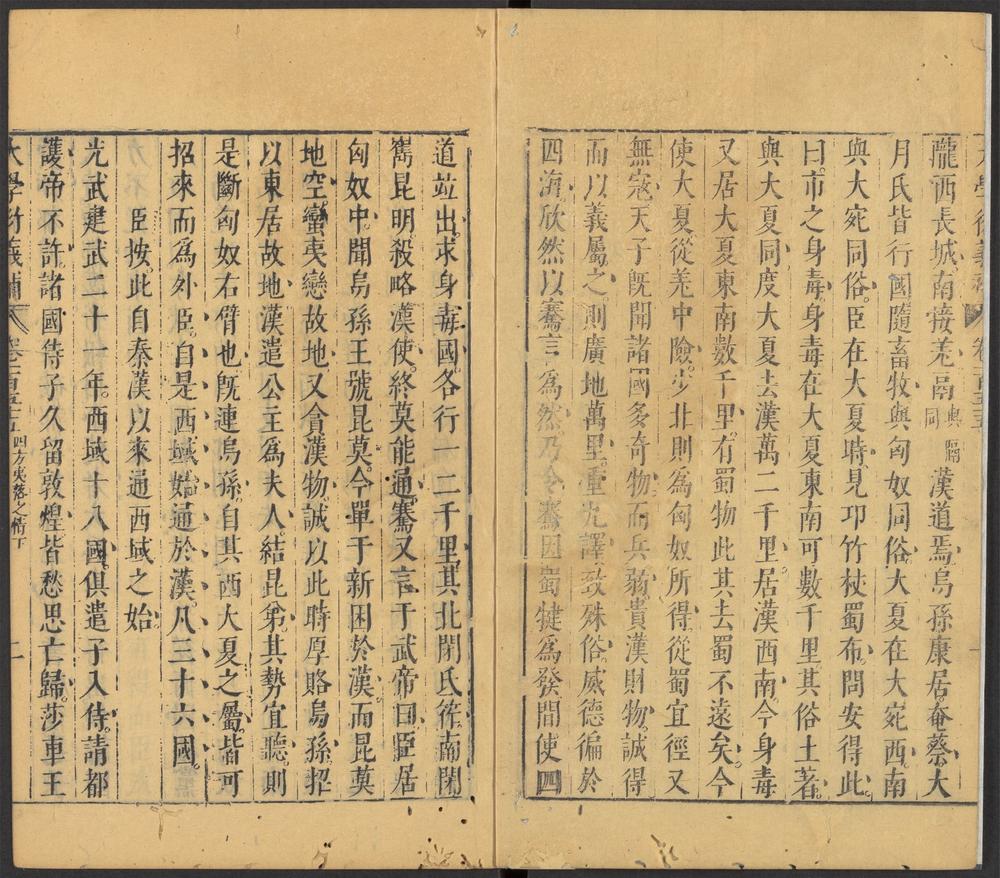 大學衍義補 卷一百五十五
隴西長城南接羌鬲與隔同漢道焉烏孫康居奄蔡大
月氏皆行國隨畜牧與匈奴同俗大夏在大宛西南
與大宛同俗臣在大夏時見邛竹杖蜀布問安得此
曰市之身毒身毒在大夏東南可數千里其俗土著
與大夏同度大夏去漢萬二千里居漢西南今身毒
又居大夏東南數千里有蜀物此其去蜀不遠矣今
使大夏從羌中險少北則爲匈奴所得從蜀宜徑又
無寇天子旣聞諸國多奇物而兵弱貴漢財物誠得
而以義屬之則廣地萬里重九譯致殊俗威德徧於
四海欣然以騫言爲然乃令騫因蜀犍爲發間使四
道竝出求身毒國各行一二千里其北閉氐筰南閉
嶲昆明殺略漢使終莫能通騫又言于武帝曰臣居
匈奴中聞烏孫王號昆莫今單于新困於漢而昆莫
地空蠻夷戀故地又貪漢物誠以此時厚賂烏孫招
以東居故地漢遣公主爲夫人結昆弟其勢宜聽則
是斷匈奴右臂也旣連烏孫自其西大夏之屬皆可
招來而爲外臣自是西域始通於漢凡三十六國
臣按此自秦漢以來通西域之始
光武建武二十一年西域十八國俱遣子入侍請都
護帝不許諸國侍子久留敦煌皆愁思亡歸莎車王
大學衍義補 卷一百五十五 四方夷落之情下 二